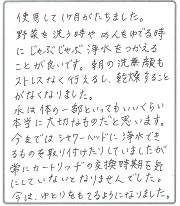 使用して1ヶ月がたちました。
野菜を洗う時やめんをゆでる時
にじゃぶじゃぶ浄水をつかえる
ことが良いです。朝の洗顔も
ストレスなく行えるし、乾燥すること
がなくなりました。
水は体の一部といってもいいくらい
本当に大切なものだと思います。
今まではシャワーヘッドに浄水でき
るものを取り付けたりしていましたが
常にカートリッジの交換時期を気
にしていないとなりませんでした。
今は、ゆとりをもてるようになりました。